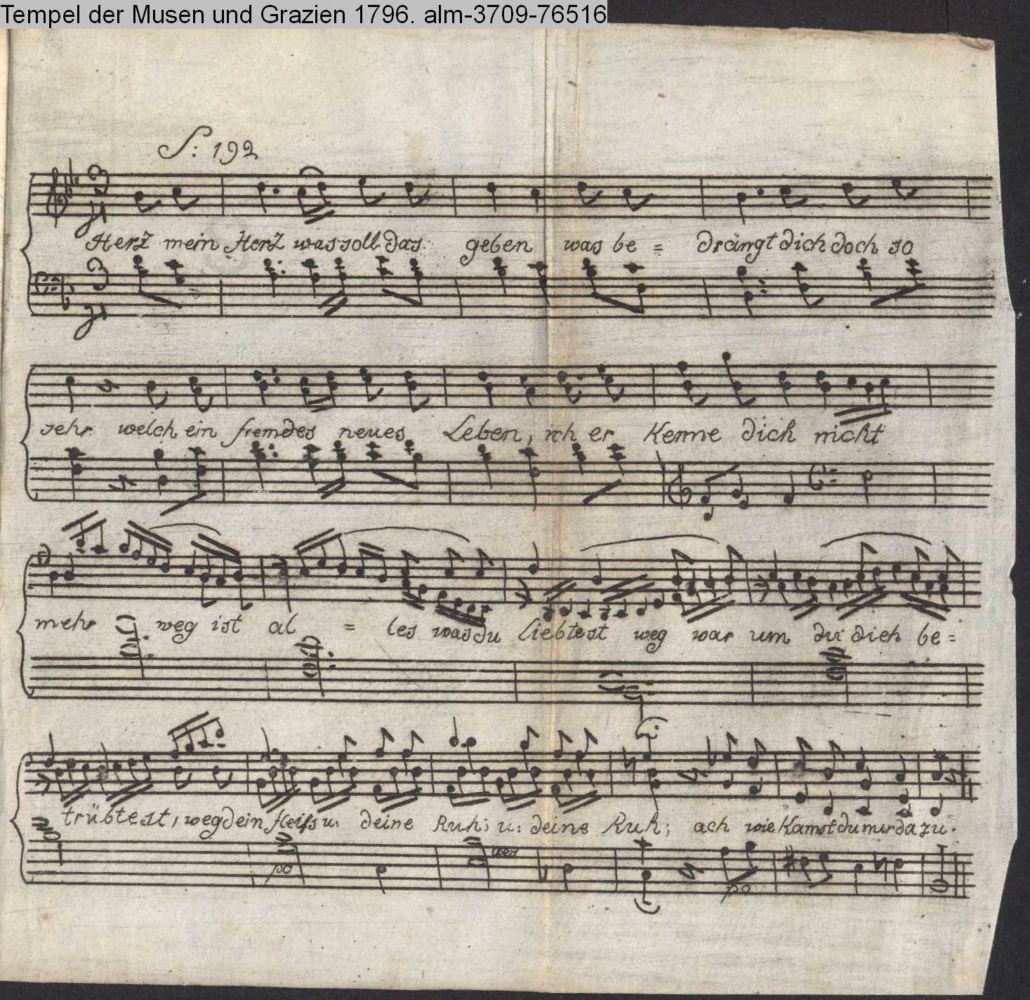 Tempel der Musen und Grazien 1796. alm-3709-76516
S: 192
Herz mein Herz was soll das geben was be = drängt dich doch so
sehr welch ein fremdes neues Leben, ich er kenne dich nicht
mehr weg ist al = les was du liebtest weg war um du dich be =
trübtest, weg dein fleiss u: deine Ruh; u: deine Ruh; ach wie kamst du nur da zu.
po po